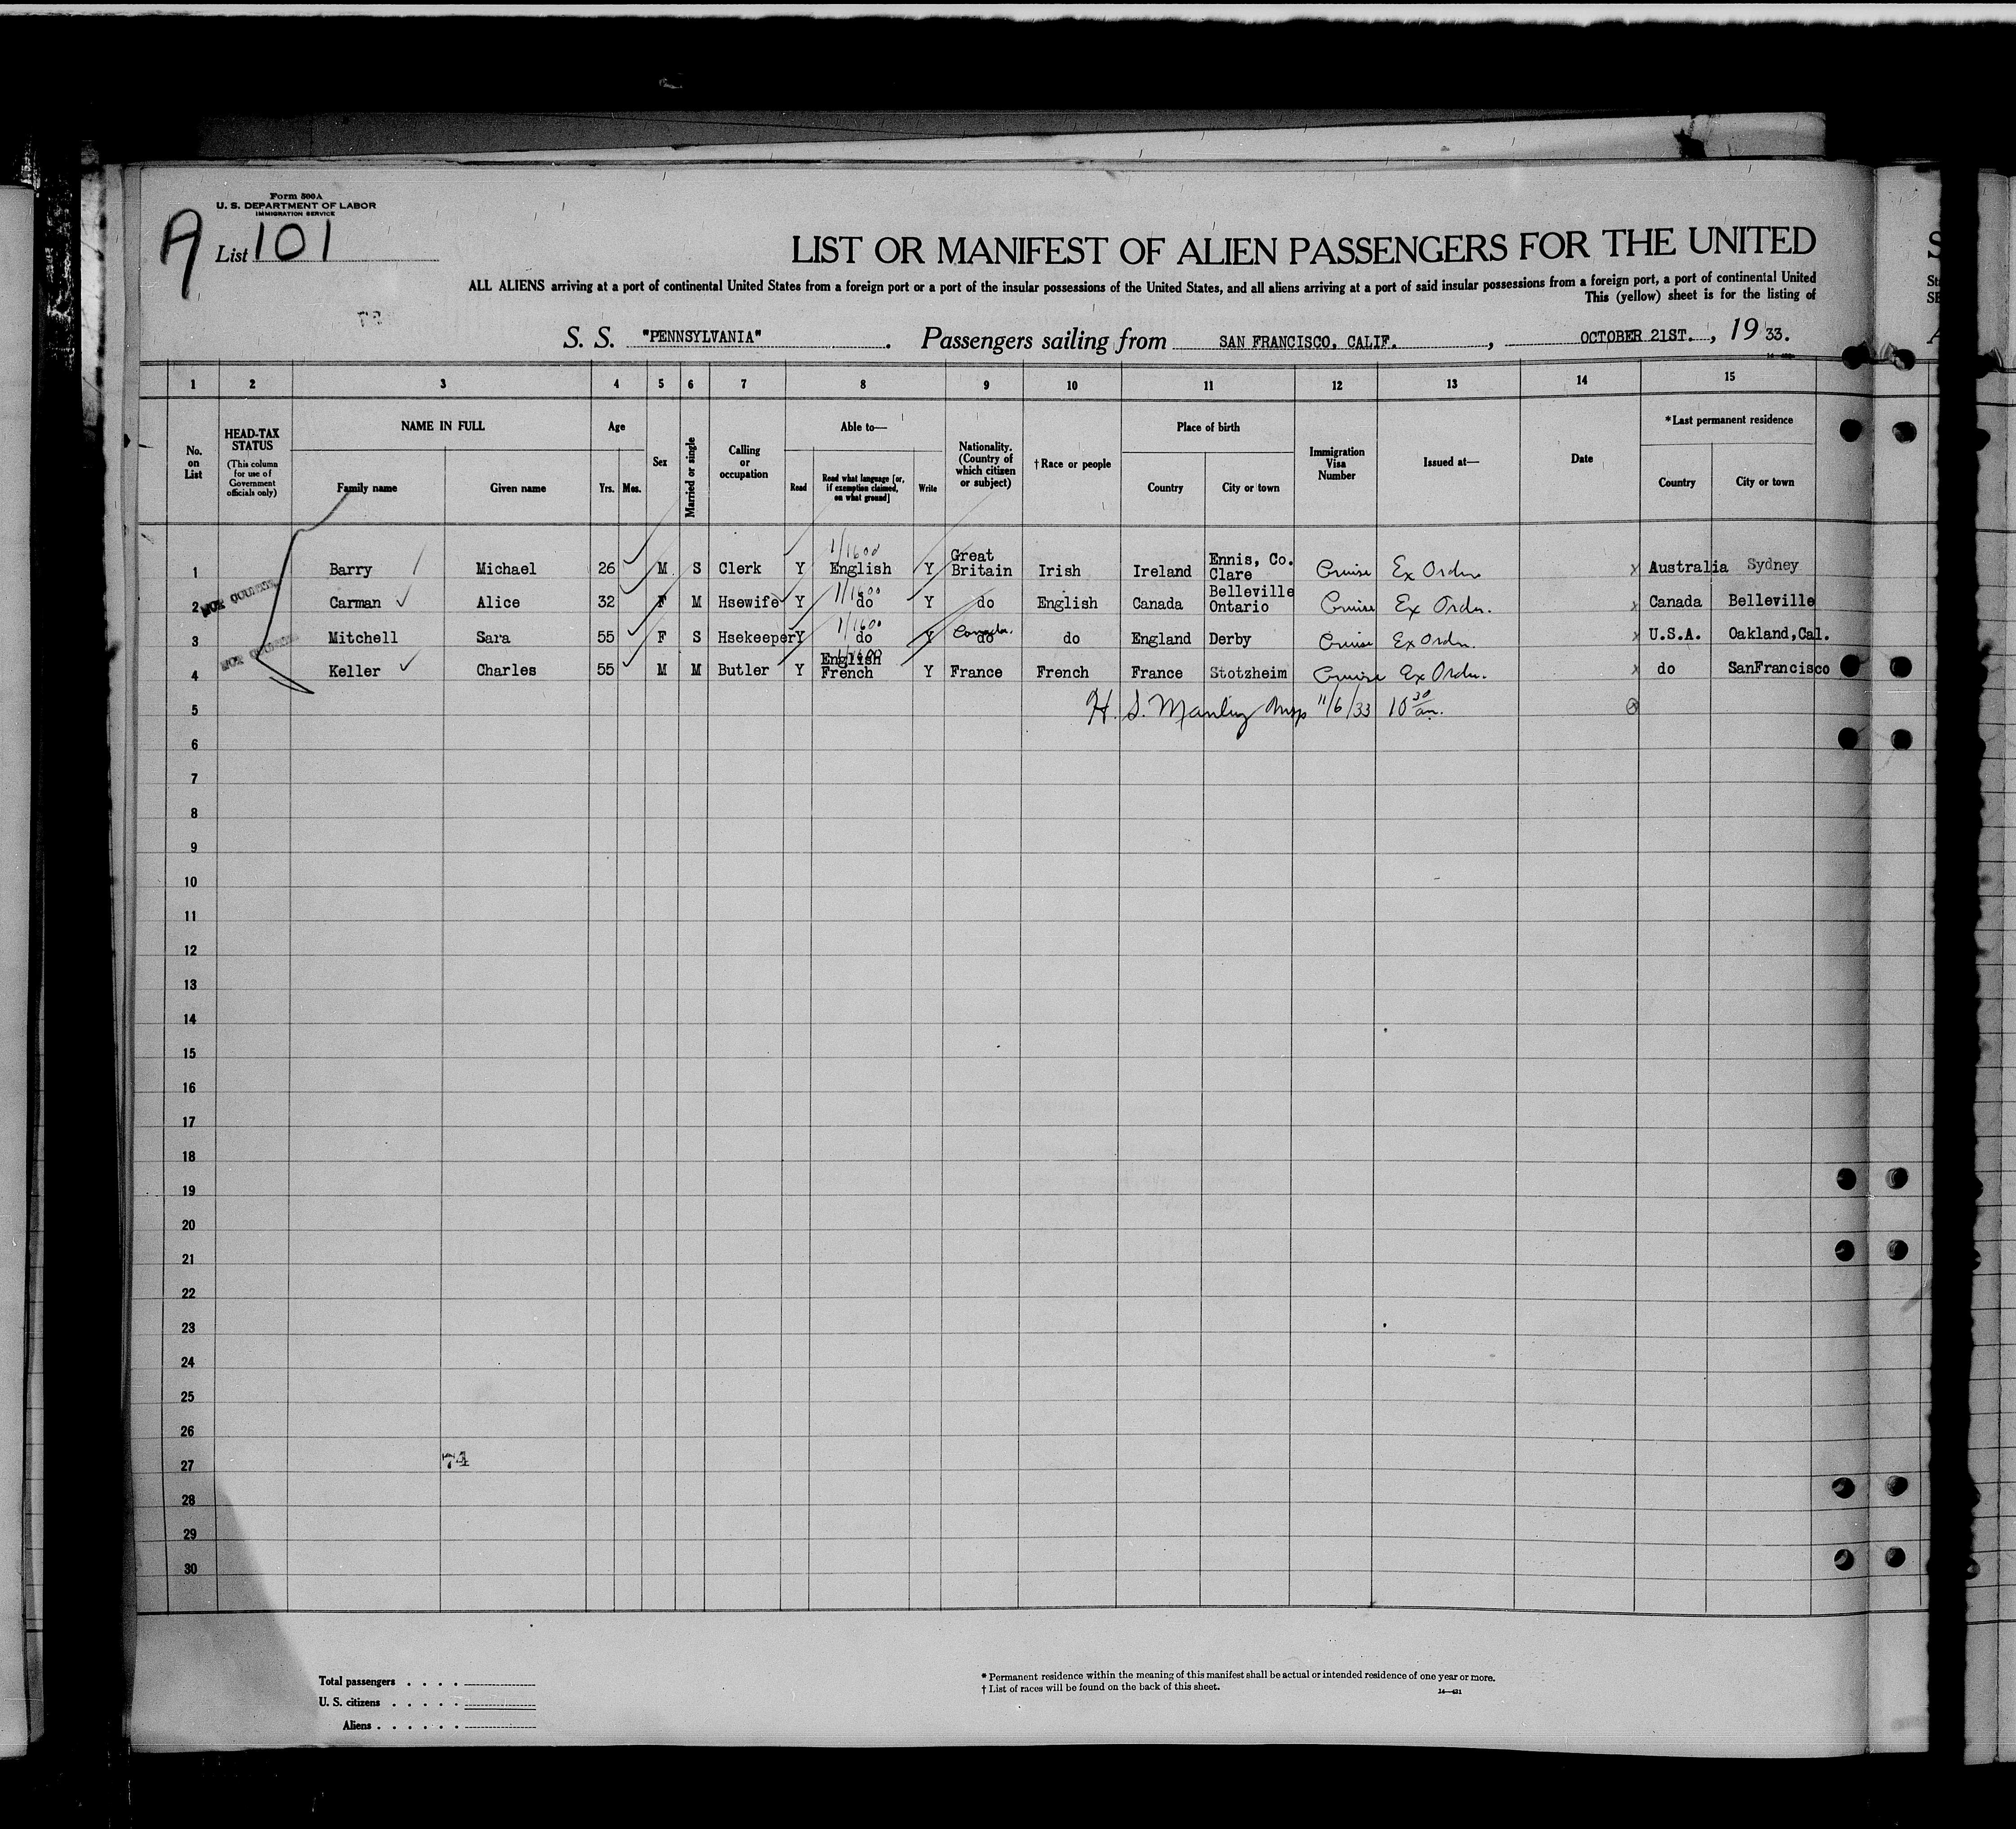 Form 500A
U. S. DEPARTMENT OF LABOR
IMMIGRATION SERVICE
A List 101
LIST OR MANIFEST OF ALIEN PASSENGERS FOR THE UNITED
ALL ALIENS arriving at a port of continental United States from a foreign port or a port of the insular possessions of the United States, and all aliens arriving at a port of said insular possessions from a foreign port, a port of continental United
This (yellow) sheet is for the listing of
S. S. "PENNSYLVANIA". Passengers sailing from SAN FRANCISCO, CALIF., OCTOBER 21ST., 19 33.
1 2 3 4 5 6 7 8 9 10 11 12 13 14 15
No. on List
HEAD-TAX STATUS
(This column for use of Government officials only)
NAME IN FULL
Family name Given name
Age
Yrs. Mos.
Sex
Married or single
Calling or occupation
Able to—
Read Read what language [or, if exemption claimed, on what ground] Write
Nationality. (Country of which citizen or subject)
†Race or people
Place of birth
Country City or town
Immigration Visa Number
Issued at—
Date
*Last permanent residence
Country City or town
1 Barry Michael 26 M S Clerk Y 1/1600 English Y Great Britain Irish Ireland Ennis, Co. Clare Cruise Ex Order x Australia Sydney
2 Carman Alice 32 F M Hsewife Y 1/1600 do Y do English Canada Belleville Ontario Cruise Ex Order. x Canada Belleville
3 Mitchell Sara 55 F S Hsekeeper Y 1/1600 do Y Canada. do do England Derby Cruise Ex Order. x U.S.A. Oakland,Cal.
4 Keller Charles 55 M M Butler Y 1/1600 English French Y France French France Stotzheim Cruise Ex Order. x do SanFrancisco
5 H. S. Manley 11/6/33 10 30 am.
6
7
8
9
10
11
12
13
14
15
16
17
18
19
20
21
22
23
24
25
26
27 74
28
29
30
Total passengers . . . .
U. S. citizens . . . . .
Aliens . . . . . .
* Permanent residence within the meaning of this manifest shall be actual or intended residence of one year or more.
† List of races will be found on the back of this sheet.
14—421